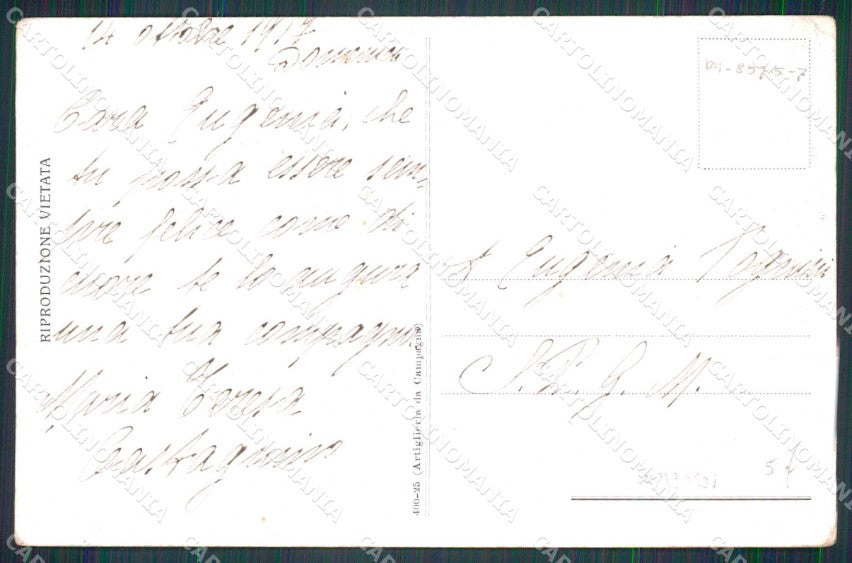 14 ottobre 1917
Domenica
Cara Eugenia, che
tu possa essere sem-
pre felice come di
cuore te lo augura
una tua compagna
Maria Teresa
Castagnino
RIPRODUZIONE VIETATA
400-25 (Artiglieria da Campagna)
A Eugenia
S. P. G. M.
57
CARTOLINOMANIA